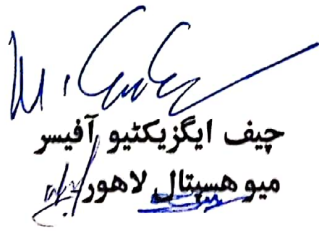 چیف ایگزیکٹیو آفیسر
میو ہسپتال لاہور